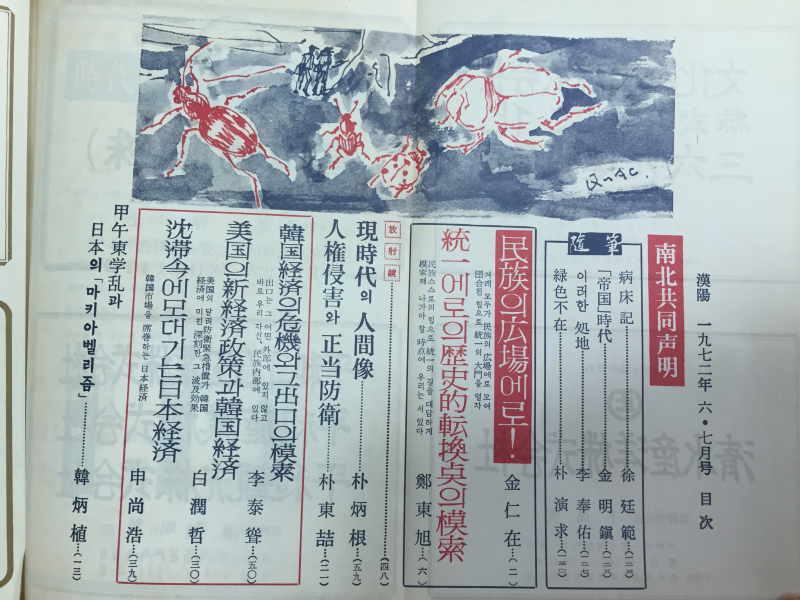 漢陽 一九七二年 六・七月号 目次
南北共同声明
随筆
病床記 徐廷範…(一二三)
「帝国」時代 金明鎭…(一二五)
이러한 処地 李奉佑…(一二七)
緑色不在 朴演求…(一三〇)
民族의 広場에로! 金仁在…(二)
겨레 모두가 民族의 広場에로 모여
団合된 힘으로 統一의 大門을 열자
統一에로의 歴史的転換点의 模索 鄭東旭…(六)
民族 스스로의 힘으로 統一의 길을 대담하게
模索해 나가야 할 時点에 우리는 서 있다
放射鏡…(四八)
現時代의 人間像 朴炳根…(五九)
人権侵害와 正当防衛 朴東喆…(二一)
韓国経済의 危機와 그 出口의 模索 李泰聳…(五〇)
出口는 그 어떤 外部에 있지 않고
바로 우리 자신、民族内部에 있다
美国의 新経済政策과 韓国経済 白潤哲…(三〇)
美国의 달러防衛緊急措置가 韓国
経済에 미친 深刻한 그 波及効果
沈滞속에 모대기는 日本経済 申尚浩…(三九)
韓国市場을 席巻하는 日本経済
甲午東学乱과
日本의「마키아벨리즘」 韓炳植…(一三)